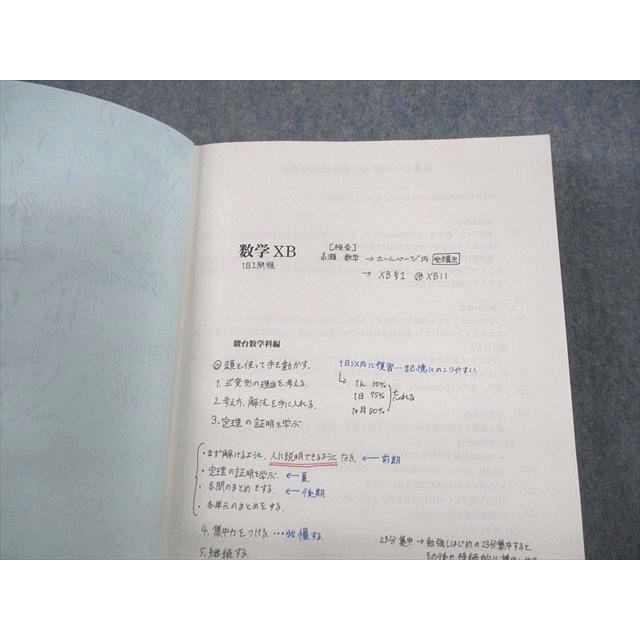 数学XB
1日2問程
[検索]
高瀬 数学 →ホームページ内 受講生
→ XB§1 ㋹ XB11
駿台数学科編
◎頭を使って手を動かす。
1日以内に復習…記憶にのこりやすい
1. 式変形の理由を考える。
1h 50%
2. 考え方、解法を手に入れる。
1日 75%
忘れる
1ヶ月 80%
3. 定理の証明を学ぶ
・まず解けるように、人に説明できるようになる。 ← 前期
・定理の証明を学ぶ。 ← 夏
・各問のまとめをする。 ← 後期
・各単元のまとめをする。
4. 集中力をつける。…我慢する。
5. 継続する。
23分集中 → 勉強しはじめの23分集中すると、
その後も持続的に集中